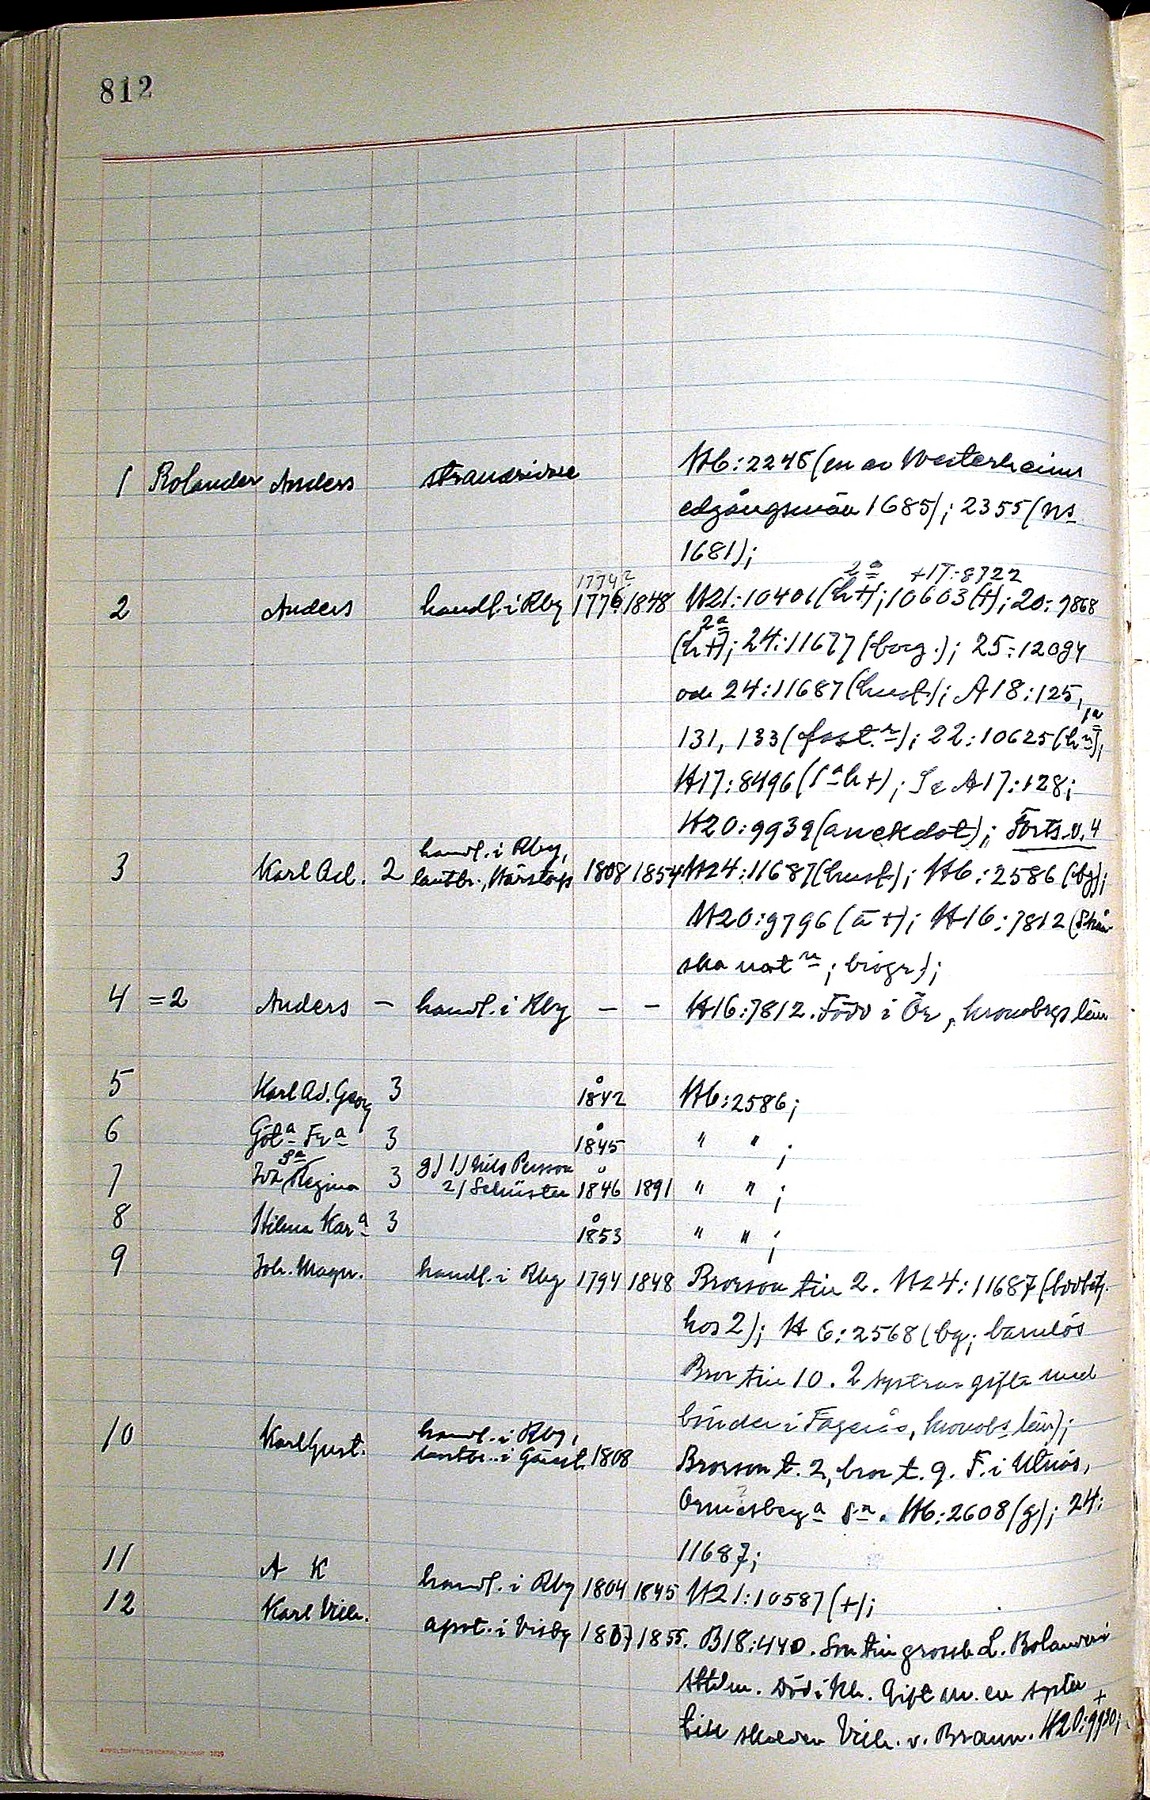 812
1 Bolander Anders strandridare H6:2245 (en av Westerheims
edgångsmän 1685); 2355 (ns
1681);
17742 2a +17:8722
2 Anders handl. i Kby 1776 1848 H21:10401 (h+); 10603 (+); 20:9868
2a
(h+); 24:11677 (borg.); 25:12094
och 24:11687 (hust); A18:125,
131, 133 (fast.r); 22:10625 (h
H17:8496 (1a h+); Se A17:128;
H20:9939 (anekdot); Forts. v. 4
handl. i Kby,
3 Karl Ad. 2 lantbr., 1808 1854 H24:11687 (hust); H6:2586 (bg);
H20:9796 (ä+); H16:7812 (Skån
ska nat n; biogr);
4 =2 Anders – handl. i Kby – – H16:7812. Född i Ör, Kronobgs län
5 Karl Ad. Georg 3 1842 H6:2586;
6 Göta Fra 3 1845 " " ;
7 Ida Regina 3 g) 1) Nils Persson
2) Schüster 1846 1891 " " ;
8 Hilma Kara 3 1853 " " ;
9 Joh. Magn. handl. i Kby 1794 1848 Brorson till 2. H24:11687 (bodbtj.
hos 2); H6:2568 (bg; barnlös
Bror till 10. 2 systrar gifta med
bönder i Fagerås, Kronobs län);
10 Karl Gust. handl. i Kby,
lantbr. i 1808 Brorson t. 2, bror t. 9. F. i
Ormesberga sn. H6:2608 (g); 24:
11687;
11 A K handl. i Kby 1804 1845 H21:10587 (+);
12 Karl Vilh. apot. i Visby 1807 1855. B18:440. Son till grossh L. Bolander i
Sthlm. Död i Kh. Gift m. en syster
till skalden Vilh. v. Braun. H20:9930;